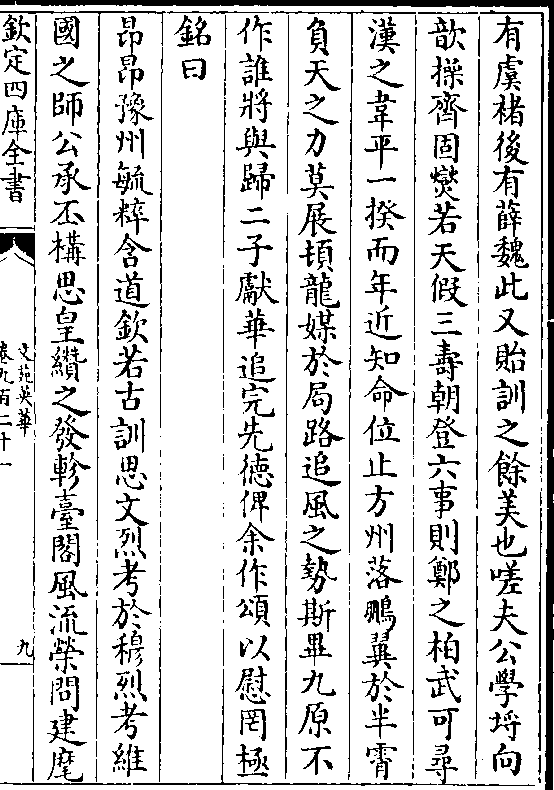 有虞褚後有薛魏此又貽訓之餘美也嗟夫公學埓向
歆操齊固爕若天假三壽朝登六事則鄭之桓武可尋
漢之韋平一揆而年近知命位止方州落鵬翼於半霄
負天之力莫展頓龍媒於局路追風之勢斯畢九原不
作誰將與歸二子獻華追完先徳俾余作頌以慰罔極
銘曰
昂昂豫州毓粹含道欽若古訓思文烈考於穆烈考維
國之師公承丕構思皇纘之發軫臺閣風流榮問建麾
欽定四庫全書
文苑英華
卷九百二十一
九